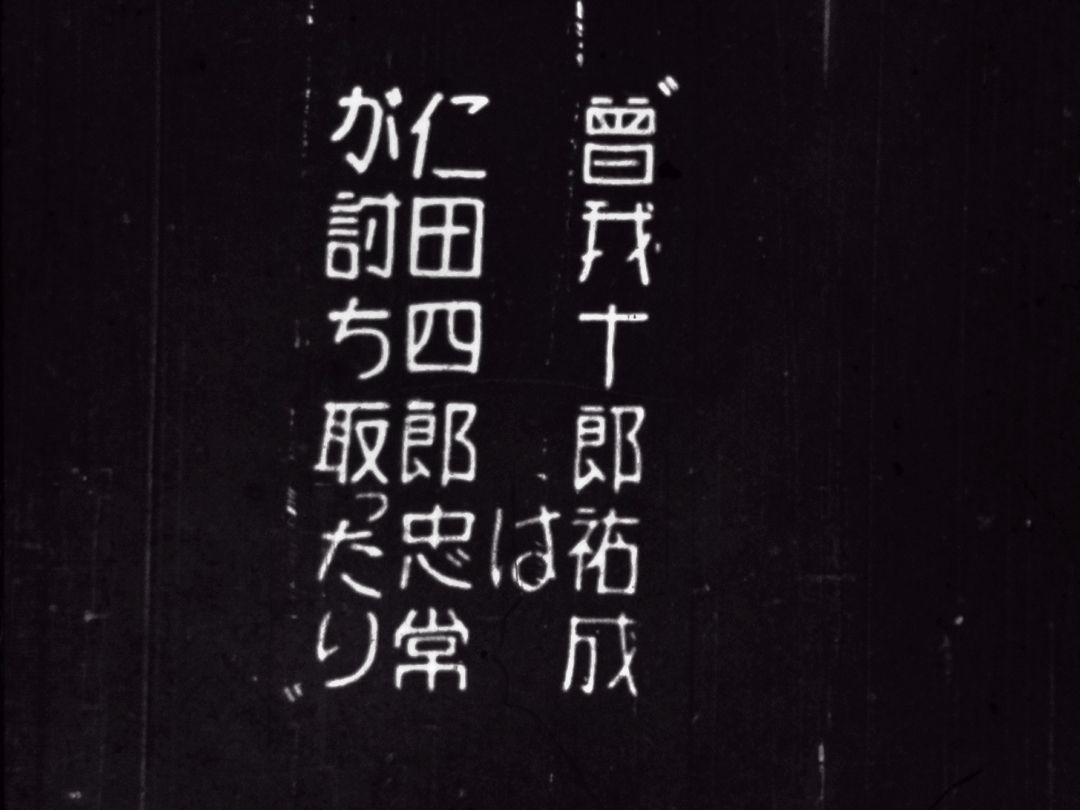 〝曾我十郎祐成
は
仁田四郎忠常
が討ち取ったり〟